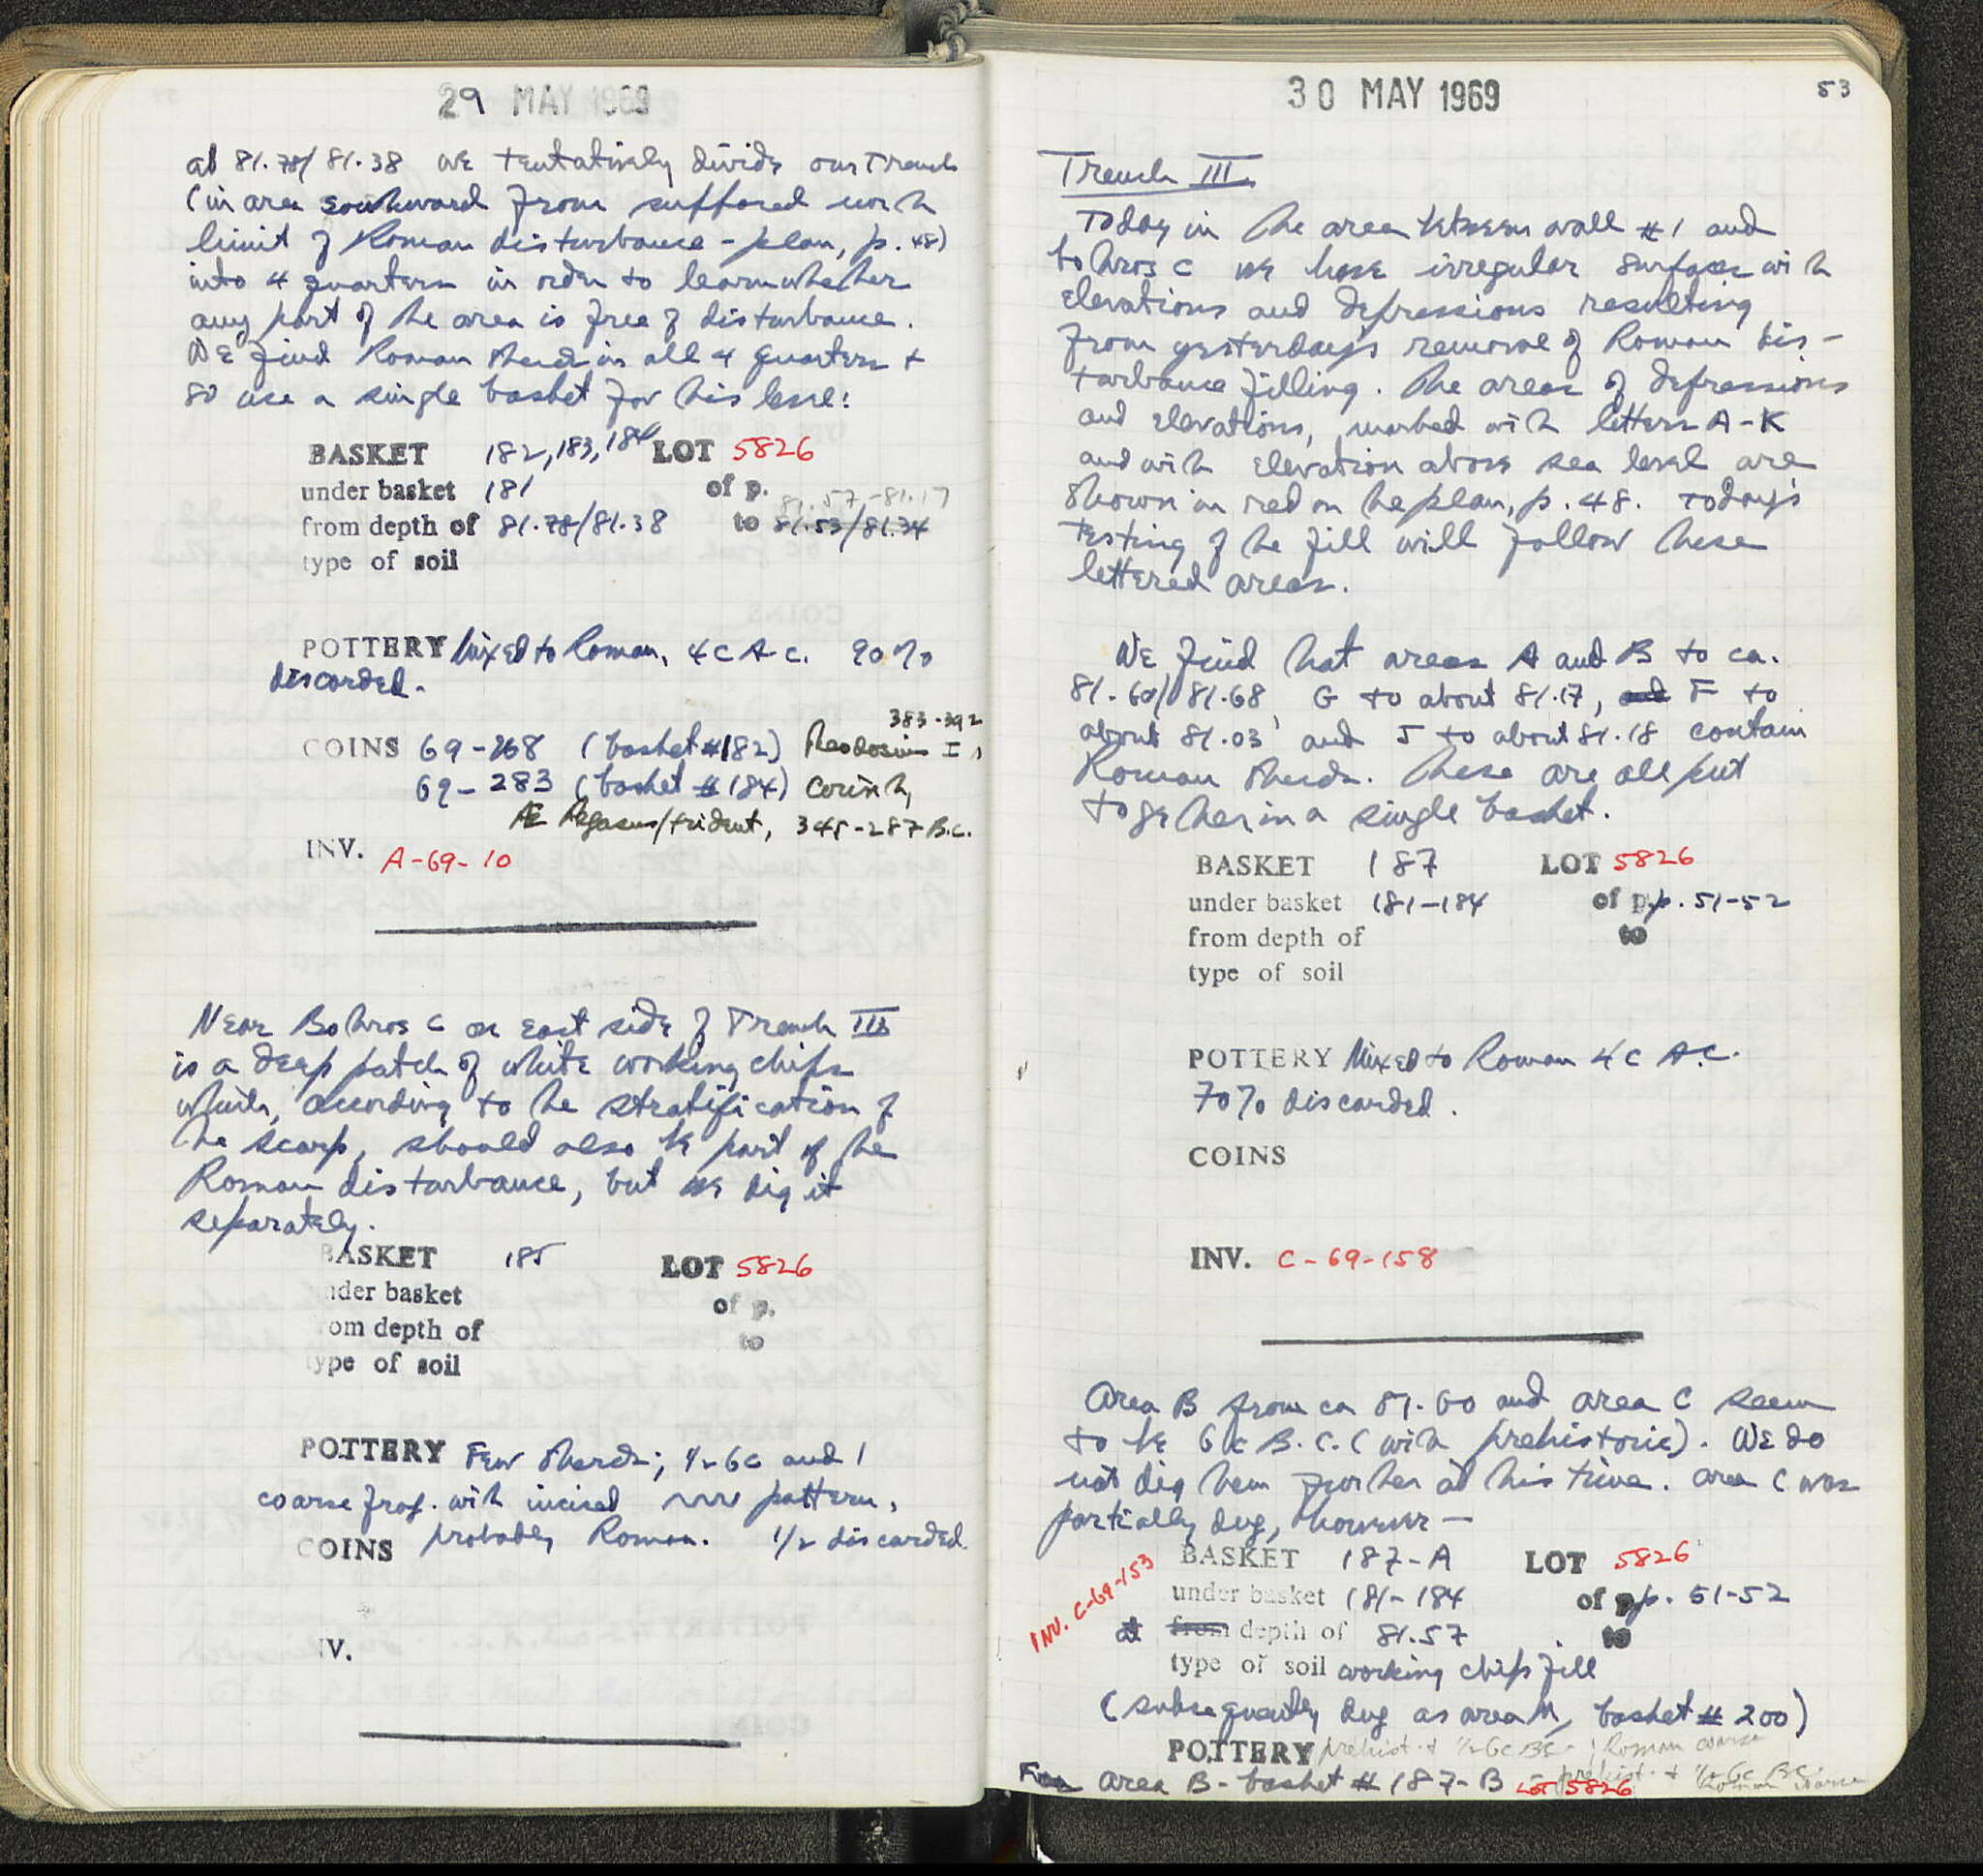 29 MAY 1969
at 81.78/81.38 we tentatively divide our Trench
(in area southward from supposed north
limit of Roman disturbance - plan, p. 48)
into 4 quarters in order to learn whether
any part of the area is free of disturbance.
We find Roman sherds in all 4 quarters +
so use a single basket for this level:
BASKET 182, 183, 184 LOT 5826
under basket 181 of p.
81.57-81.17
from depth of 81.78/81.38 to 81.53/81.34
type of soil
POTTERY Mixed to Roman, 4c A.C. 90%
discarded.
383-392
COINS 69-268 (basket #182) Theodosius I,
69-283 (basket #184) Corinth,
AE Pegasus/trident, 345-287 B.C.
INV. A-69-10
Near Bothros C on east side of Trench III
is a deep patch of white working chips
which, according to the stratification of
the scarp, should also be part of the
Roman disturbance, but we dig it
separately.
BASKET 185 LOT 5826
under basket of p.
from depth of to
type of soil
POTTERY Few sherds; 1/2 6c and 1
coarse frag. with incised pattern,
probably Roman. 1/2 discarded.
COINS
NV.
30 MAY 1969
53
Trench III
Today in the area between wall #1 and
bothros C we have irregular surfaces with
elevations and depressions resulting
from yesterday's removal of Roman dis-
turbance filling. The areas of depressions
and elevations, marked with letters A-K
and with elevation above sea level are
shown in red on the plan, p. 48. Today's
testing of the fill will follow these
lettered areas.
We find that areas A and B to ca.
81.60/81.68, G to about 81.17, and F to
about 81.03, and J to about 81.18 contain
Roman sherds. These are all put
together in a single basket.
BASKET 187 LOT 5826
under basket 181-184 of pp. 51-52
from depth of to
type of soil
POTTERY Mixed to Roman 4c A.C.
70% discarded.
COINS
INV. C-69-158
Area B from ca 81.60 and area C seem
to be 6c B.C. (with prehistoric). We do
not dig them further at this time. Area C was
partially dug, however—
BASKET 187-A LOT 5826
INV. C-69-153
under basket 181-184 of pp. 51-52
at from depth of 81.57 to
type of soil working chips fill
(subsequently dug as area M, basket #200)
POTTERY prehist. + 1/2 6c BC; Roman coarse
For area B - basket #187-B LOT 5826 - prehist. + 1/2 6c BC. Roman coarse